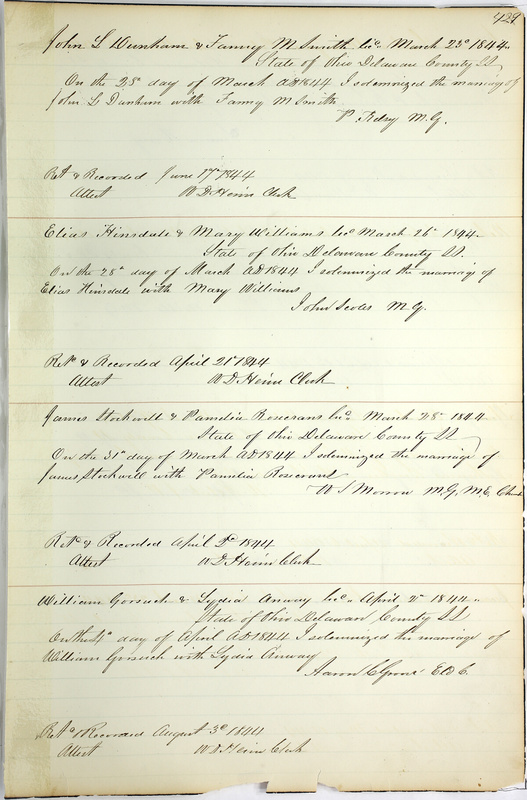 429
John L Dunham & Fanny M Smith Lic. March 23d 1844.
State of Ohio Delaware County SS
On the 28th day of March AD 1844 I solemnized the marriage of
John L Dunham with Fanny M Smith
P. Kelsey M.G.
Retd & Recorded June 17th 1844
Attest W D Heim Clerk
Elias Hinsdale & Mary Williams Lic March 26th 1844.
State of Ohio Delaware County SS.
On the 28th day of March AD 1844 I solemnized the marriage of
Elias Hinsdale with Mary Williams
John Scoles M.G.
Retd & Recorded April 21st 1844
Attest W D Heim Clerk
James Stockwell & Pamilia Rosecrans Lic. March 28th 1844
State of Ohio Delaware County SS
On the 31st day of March AD 1844 I solemnized the marriage of
James Stockwell with Pamilia Rosecrans
W S Morrow M.G. M.E. Church
Retd & Recorded April 2d 1844
Attest W D Heim Clerk
William Gorsuch & Lydia Anway Lic. April 2d 1844.
State of Ohio Delaware County SS
On the 4th day of April AD 1844 I solemnized the marriage of
William Gorsuch with Lydia Anway
Aaron C Eld C.
Retd & Recorded August 3d 1844
Attest W D Heim Clerk